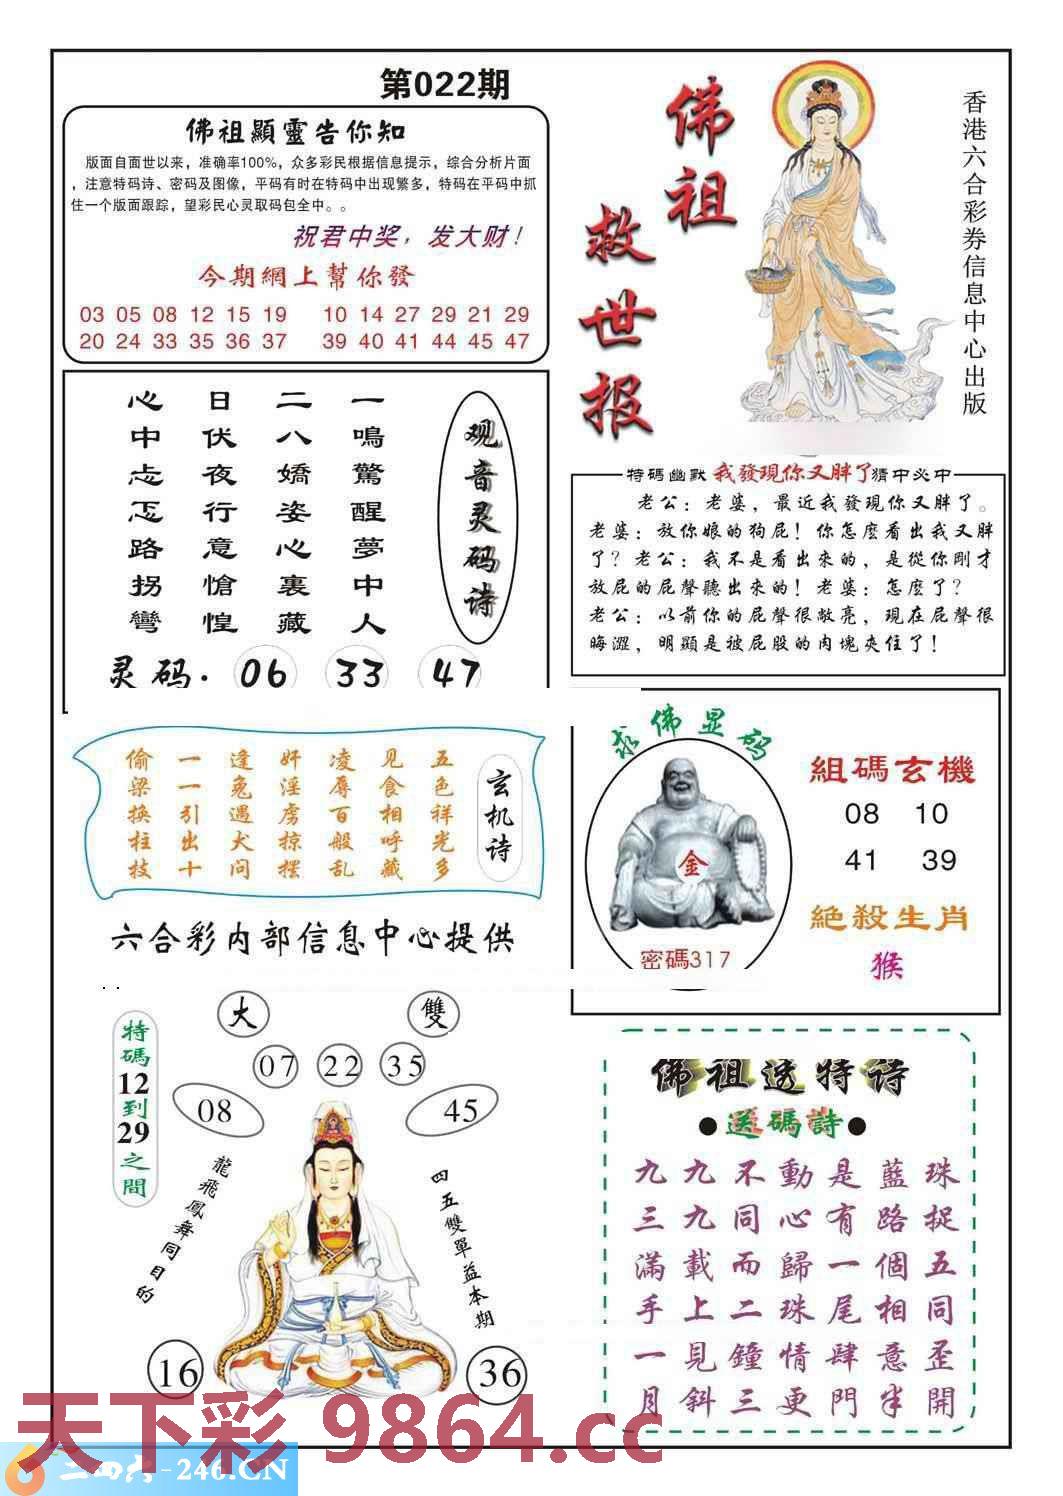 第022期
佛祖顯靈告你知
版面自面世以来，准确率100%，众多彩民根据信息提示，综合分析片面
，注意特码诗、密码及图像，平码有时在特码中出现繁多，特码在平码中抓
住一个版面跟踪，望彩民心灵取码包全中。。
祝君中奖，发大财！
今期網上幫你發
03 05 08 12 15 19 10 14 27 29 21 29
20 24 33 35 36 37 39 40 41 44 45 47
佛祖
救世报
香港六合彩券信息中心出版
观音灵码诗
一鳴驚醒夢中人
二八嬌姿心裏藏
日伏夜行意愴惶
心中忐忑路拐彎
灵码. 06 33 47
特碼幽默 我發現你又胖了 猜中必中
老公：老婆，最近我發現你又胖了。
老婆：放你娘的狗屁！你怎麼看出我又胖
了？老公：我不是看出來的，是從你剛才
放屁的屁聲聽出來的！老婆：怎麼了？
老公：以前你的屁聲很敞亮，現在屁聲很
晦澀，明顯是被屁股的肉塊夾住了！
玄机诗
五色祥光多
见食相呼藏
凌辱百般乱
奸淫虏掠摆
逢兔遇犬问
一一引出十
偷梁换柱技
六合彩内部信息中心提供
求佛显码
金
密碼317
組碼玄機
08 10
41 39
絕殺生肖
猴
特碼12到29之間
大 雙
07 22 35
08 45
龍飛鳳舞同目的
四五雙單益本期
16 36
佛祖透特诗
●送碼詩●
九九不動是藍珠
三九同心有路捉
滿載而歸一個五
手上二珠尾相同
一見鐘情肆意歪
月斜三更門半開
天下彩 9864.cc
二四六-246.CN